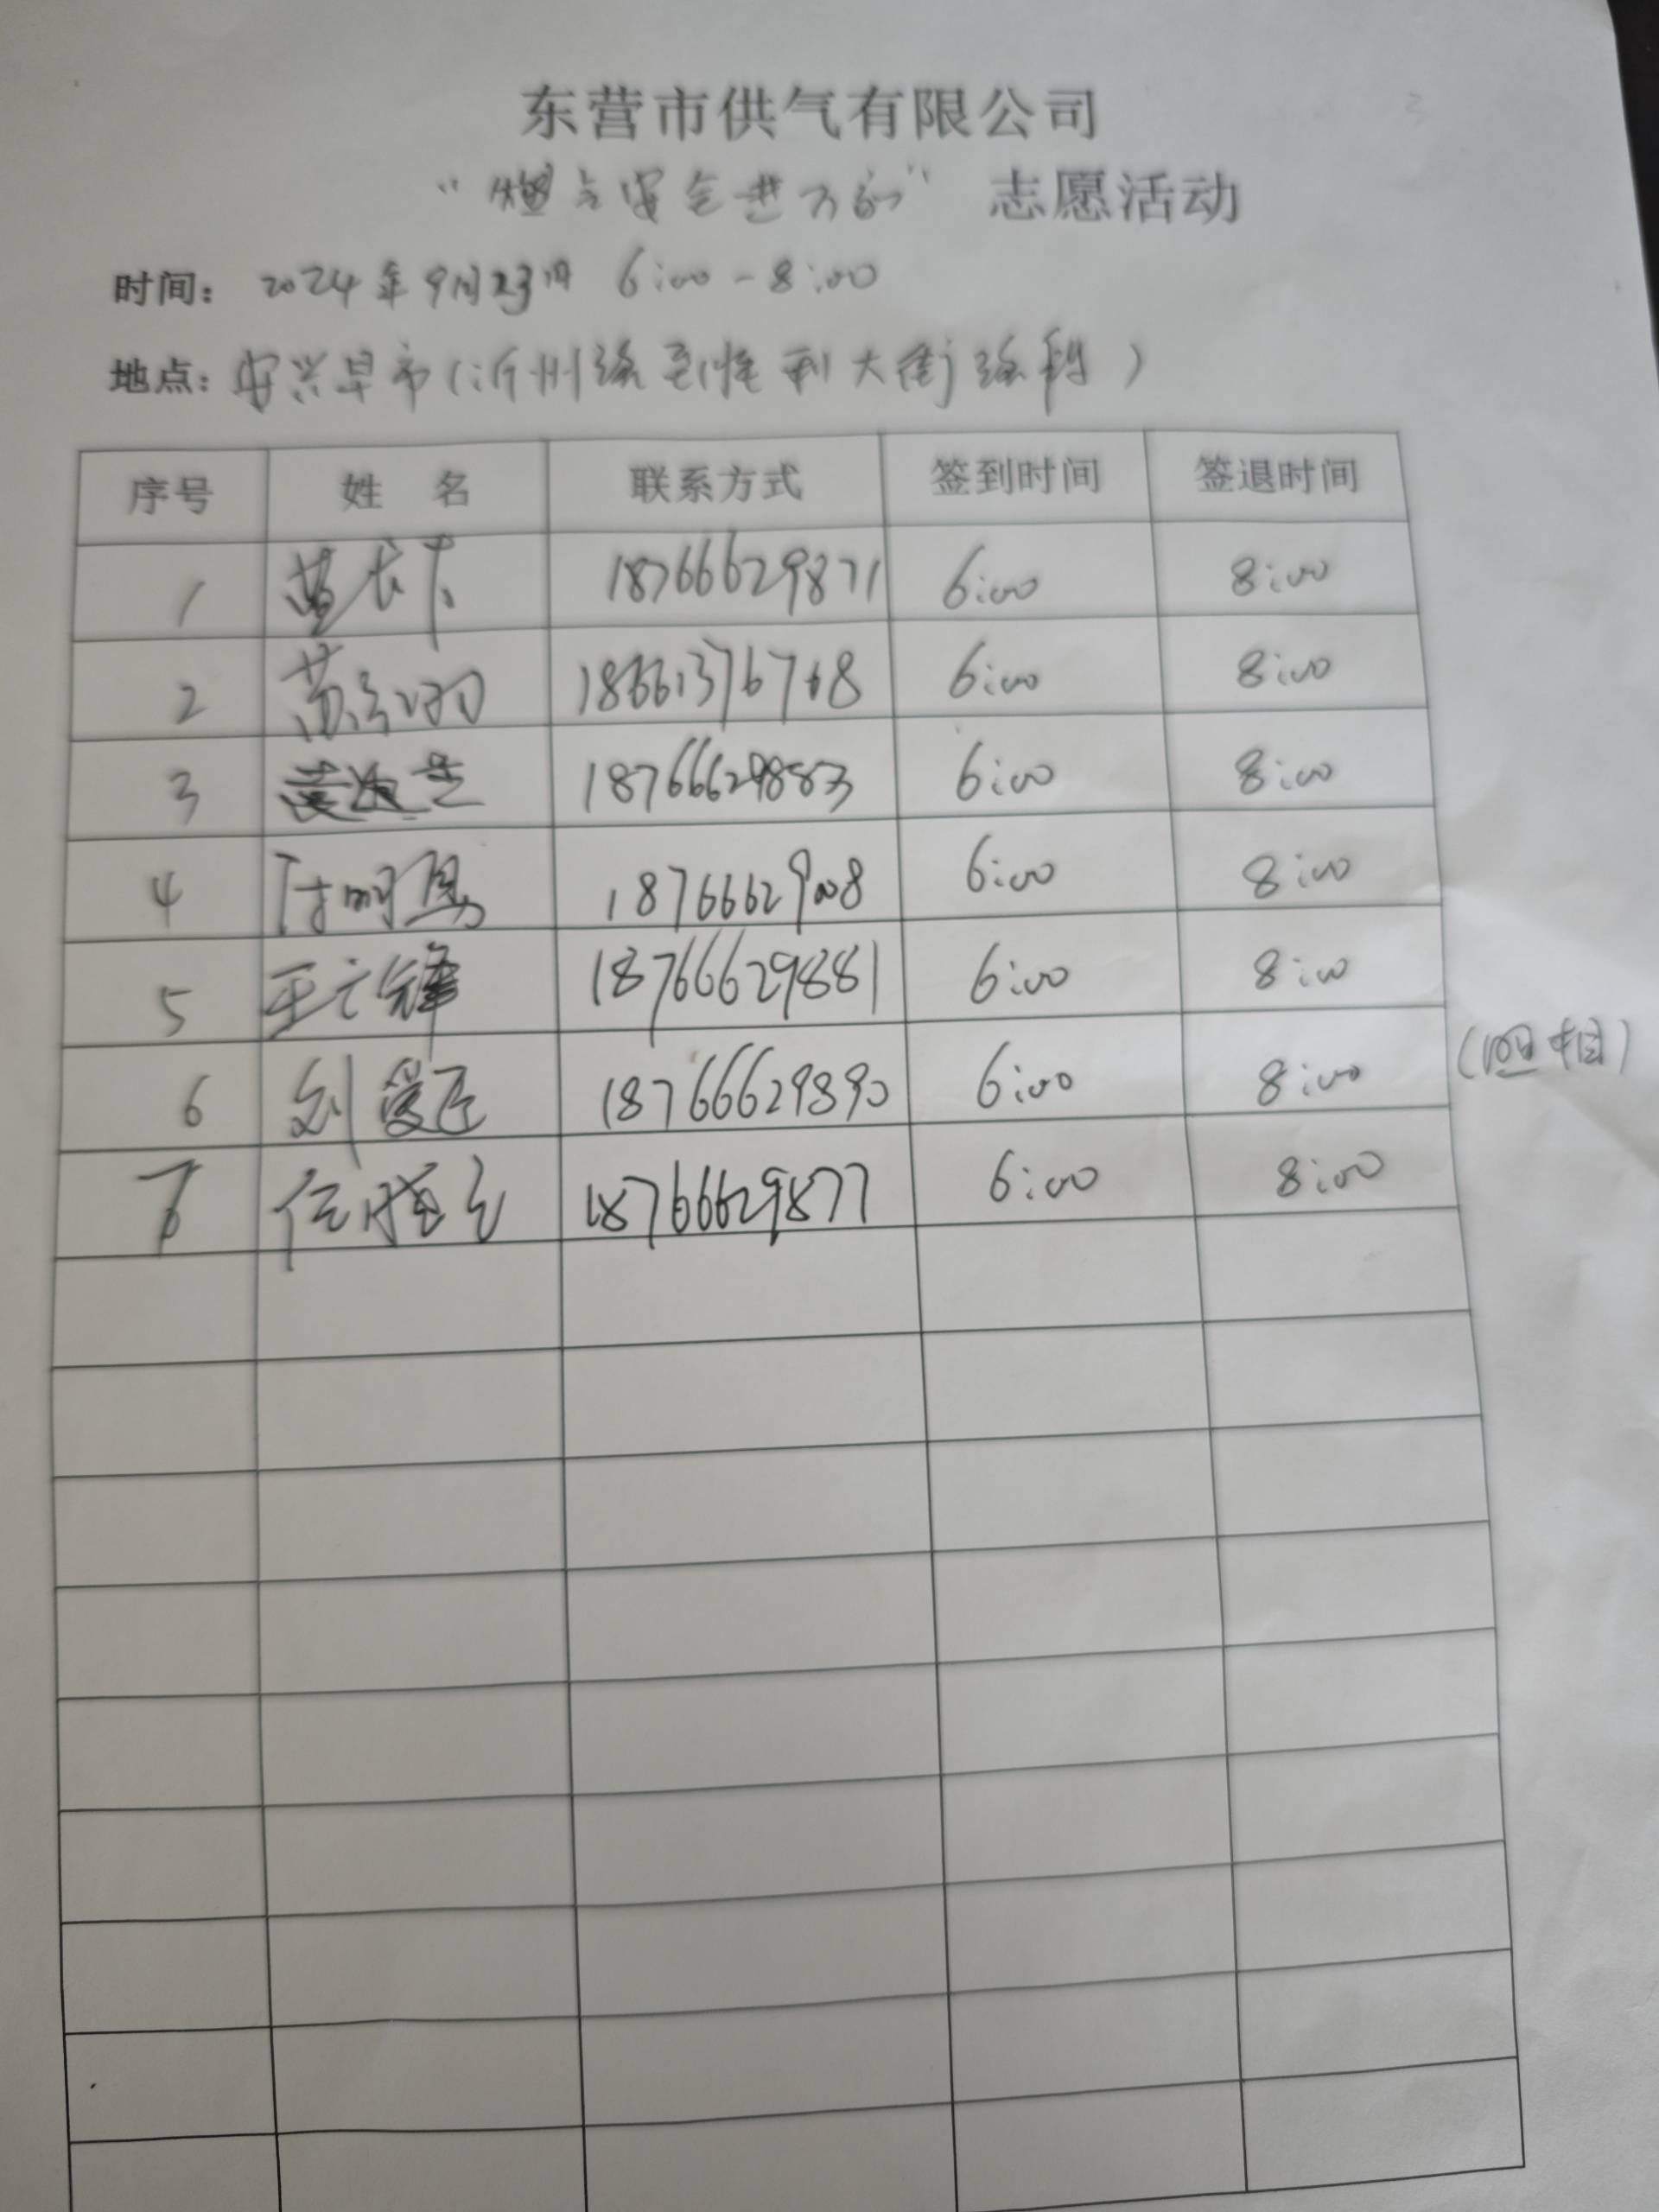 东营市供气有限公司
“燃气安全进万家” 志愿活动
时间: 2024年9月23日 6:00-8:00
地点: 安兴早市(沂州路至胜利大街路段)
序号 姓 名 联系方式 签到时间 签退时间
1 18766629871 6:00 8:00
2 18661376768 6:00 8:00
3 18766629883 6:00 8:00
4 18766629008 6:00 8:00
5 王 锋 18766629881 6:00 8:00
6 刘爱臣 18766629890 6:00 8:00 (照相)
7 任 18766629877 6:00 8:00